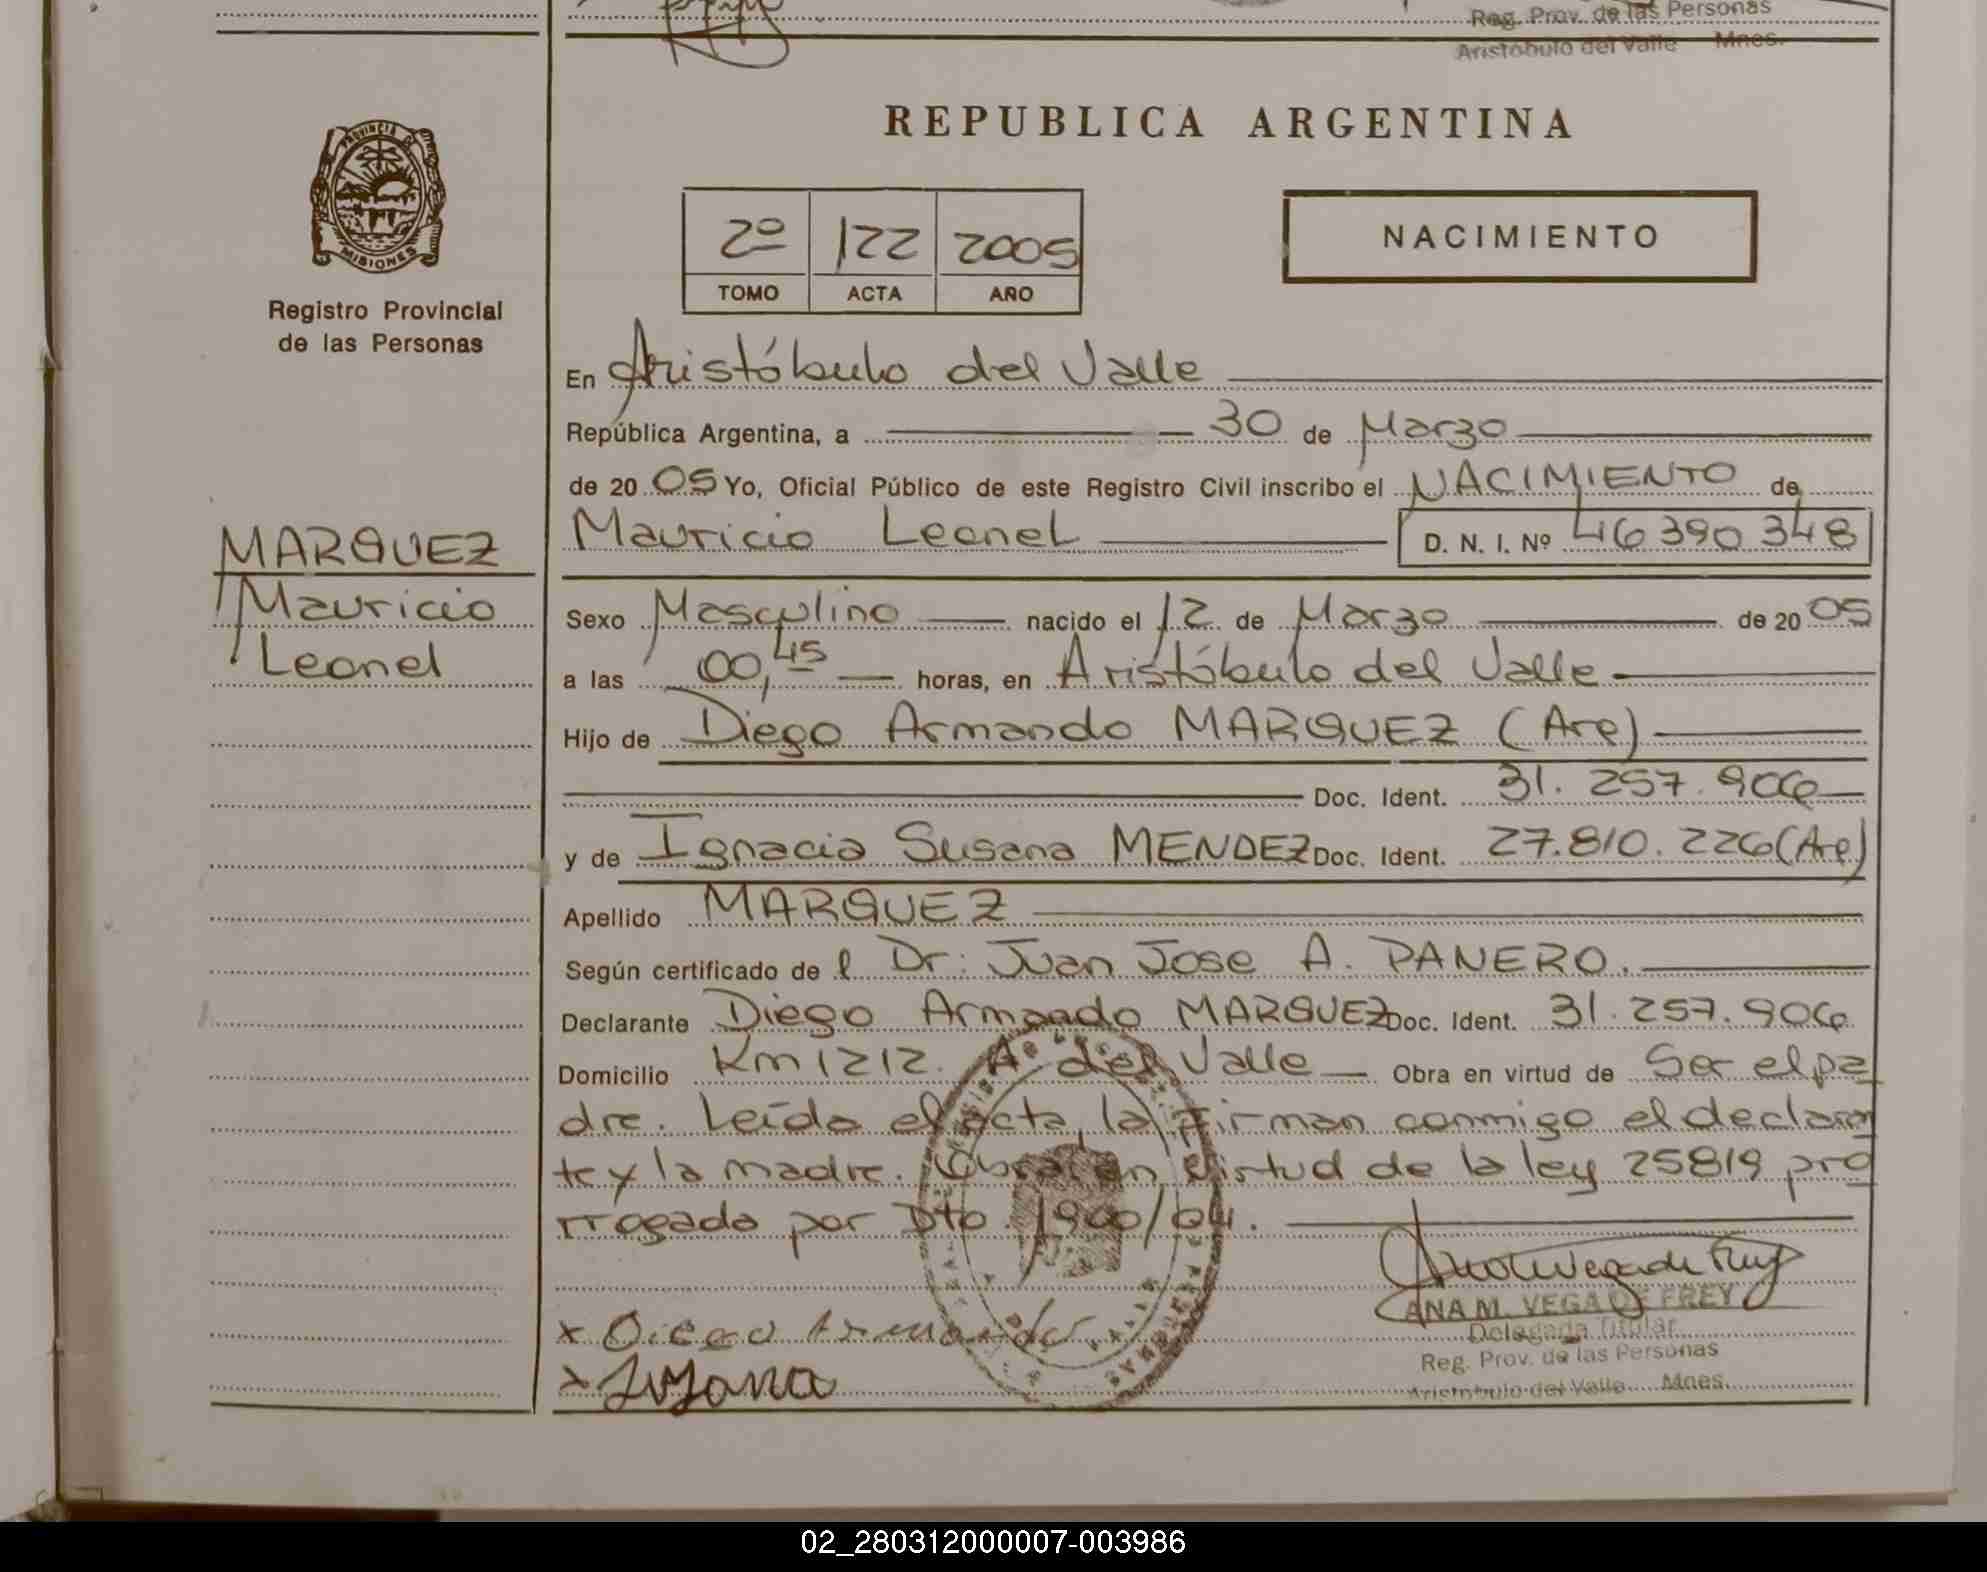 Reg. Prov. de las Personas
Aristóbulo del Valle Mnes.
PROVINCIA DE
MISIONES
Registro Provincial
de las Personas
REPUBLICA ARGENTINA
2º 122 2005
TOMO ACTA AÑO
NACIMIENTO
MARQUEZ
Mauricio
Leonel
En Aristóbulo del Valle
República Argentina, a 30 de Marzo
de 20 05 Yo, Oficial Público de este Registro Civil inscribo el NACIMIENTO de
Mauricio Leonel D. N. I. Nº 46 390 348
Sexo Masculino nacido el 12 de Marzo de 20 05
a las 00,45 horas, en Aristóbulo del Valle
Hijo de Diego Armando MARQUEZ (Arg)
Doc. Ident. 31.257.906
y de Ignacia Susana MENDEZ Doc. Ident. 27.810.226 (Arg)
Apellido MARQUEZ
Según certificado de l Dr: Juan Jose A. PANERO.
Declarante Diego Armando MARQUEZ Doc. Ident. 31.257.906
Domicilio Km 1212. A. del Valle Obra en virtud de Ser el pa
dre. Leída el acta, la firman conmigo el declaran
te y la madre. Obra en virtud de la ley 25819 pro
rrogada por Dto. 1900/04.
x Diego Armando
x Susana
ANA M. VEGA DE FREY
Delegada Titular
Reg. Prov. de las Personas
Aristóbulo del Valle Mnes.
02_280312000007-003986